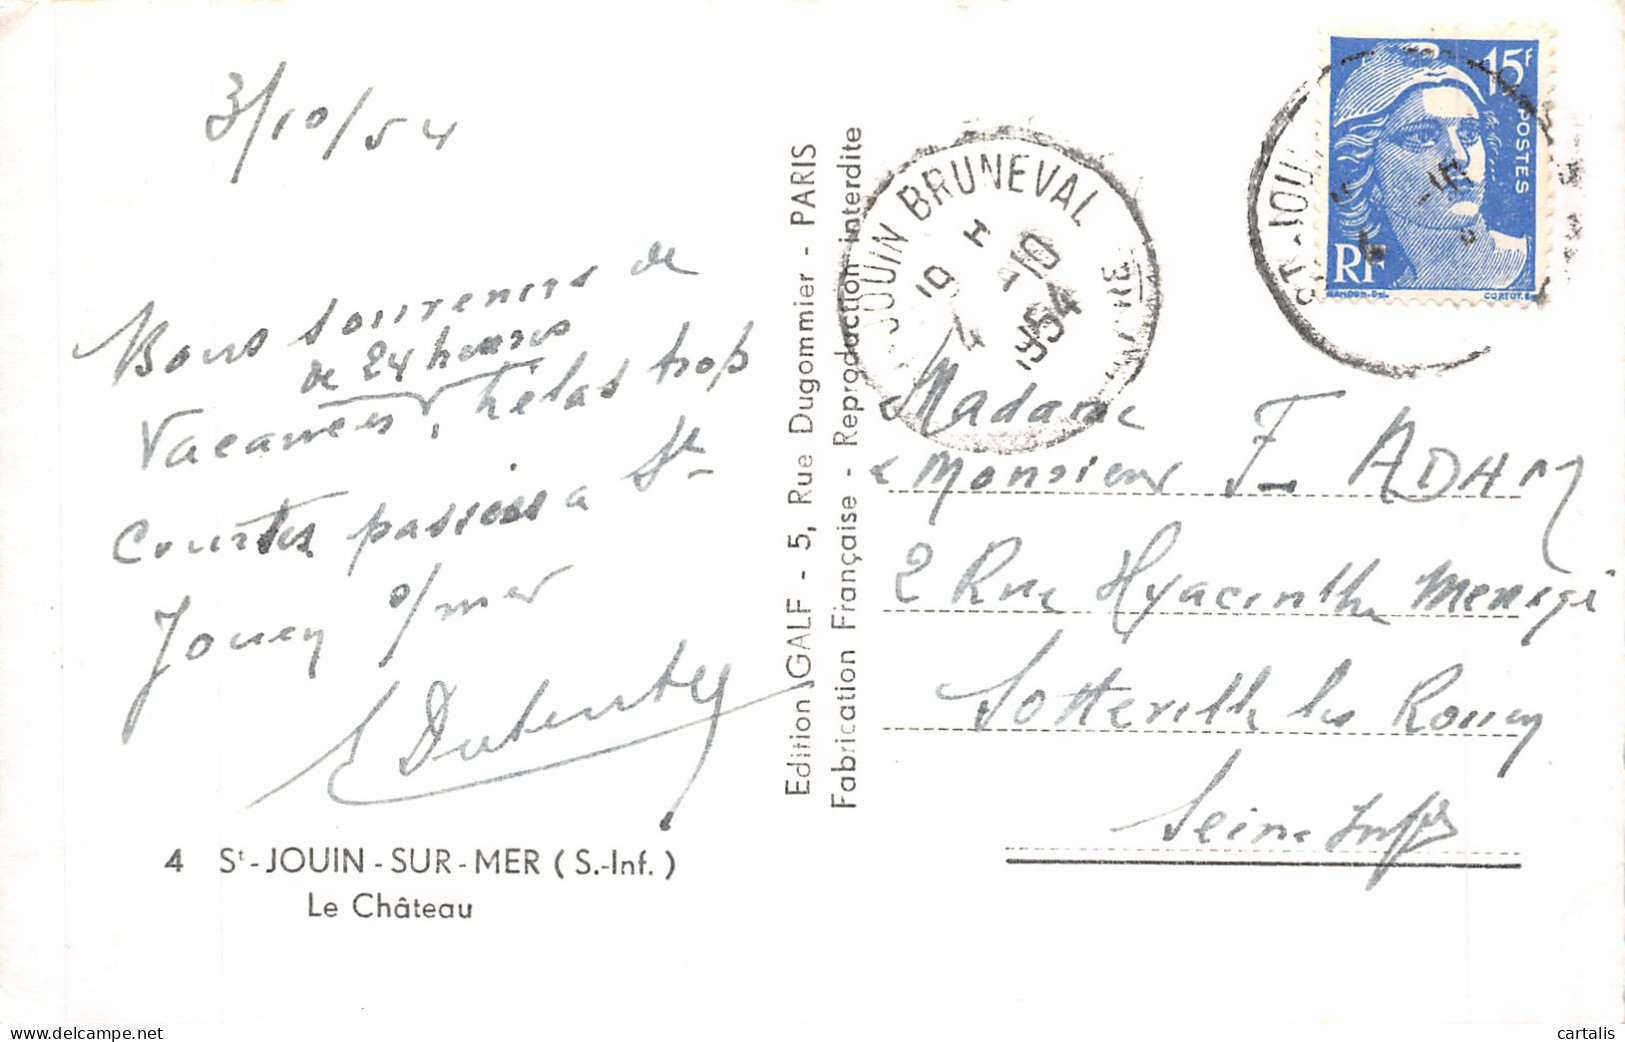 3/10/54
Bons souvenirs de
de 24 heures
Vacances, hélas trop
Courtes passées a St
Jouin s/mer
4 St-JOUIN-SUR-MER (S.-Inf.)
Le Château
Edition GALF - 5, Rue Dugommier - PARIS
Fabrication Française - Reproduction interdite
JOUIN BRUNEVAL
10 4
1954
ST-JOUI
15F
POSTES
RF
GANDON-Del.
CORTOT.
Madame
Monsieur F_ ADAM
2 Rue Hyacinthe
Sotteville les Rouen
Seine Infre
cartalis
delcampe.net